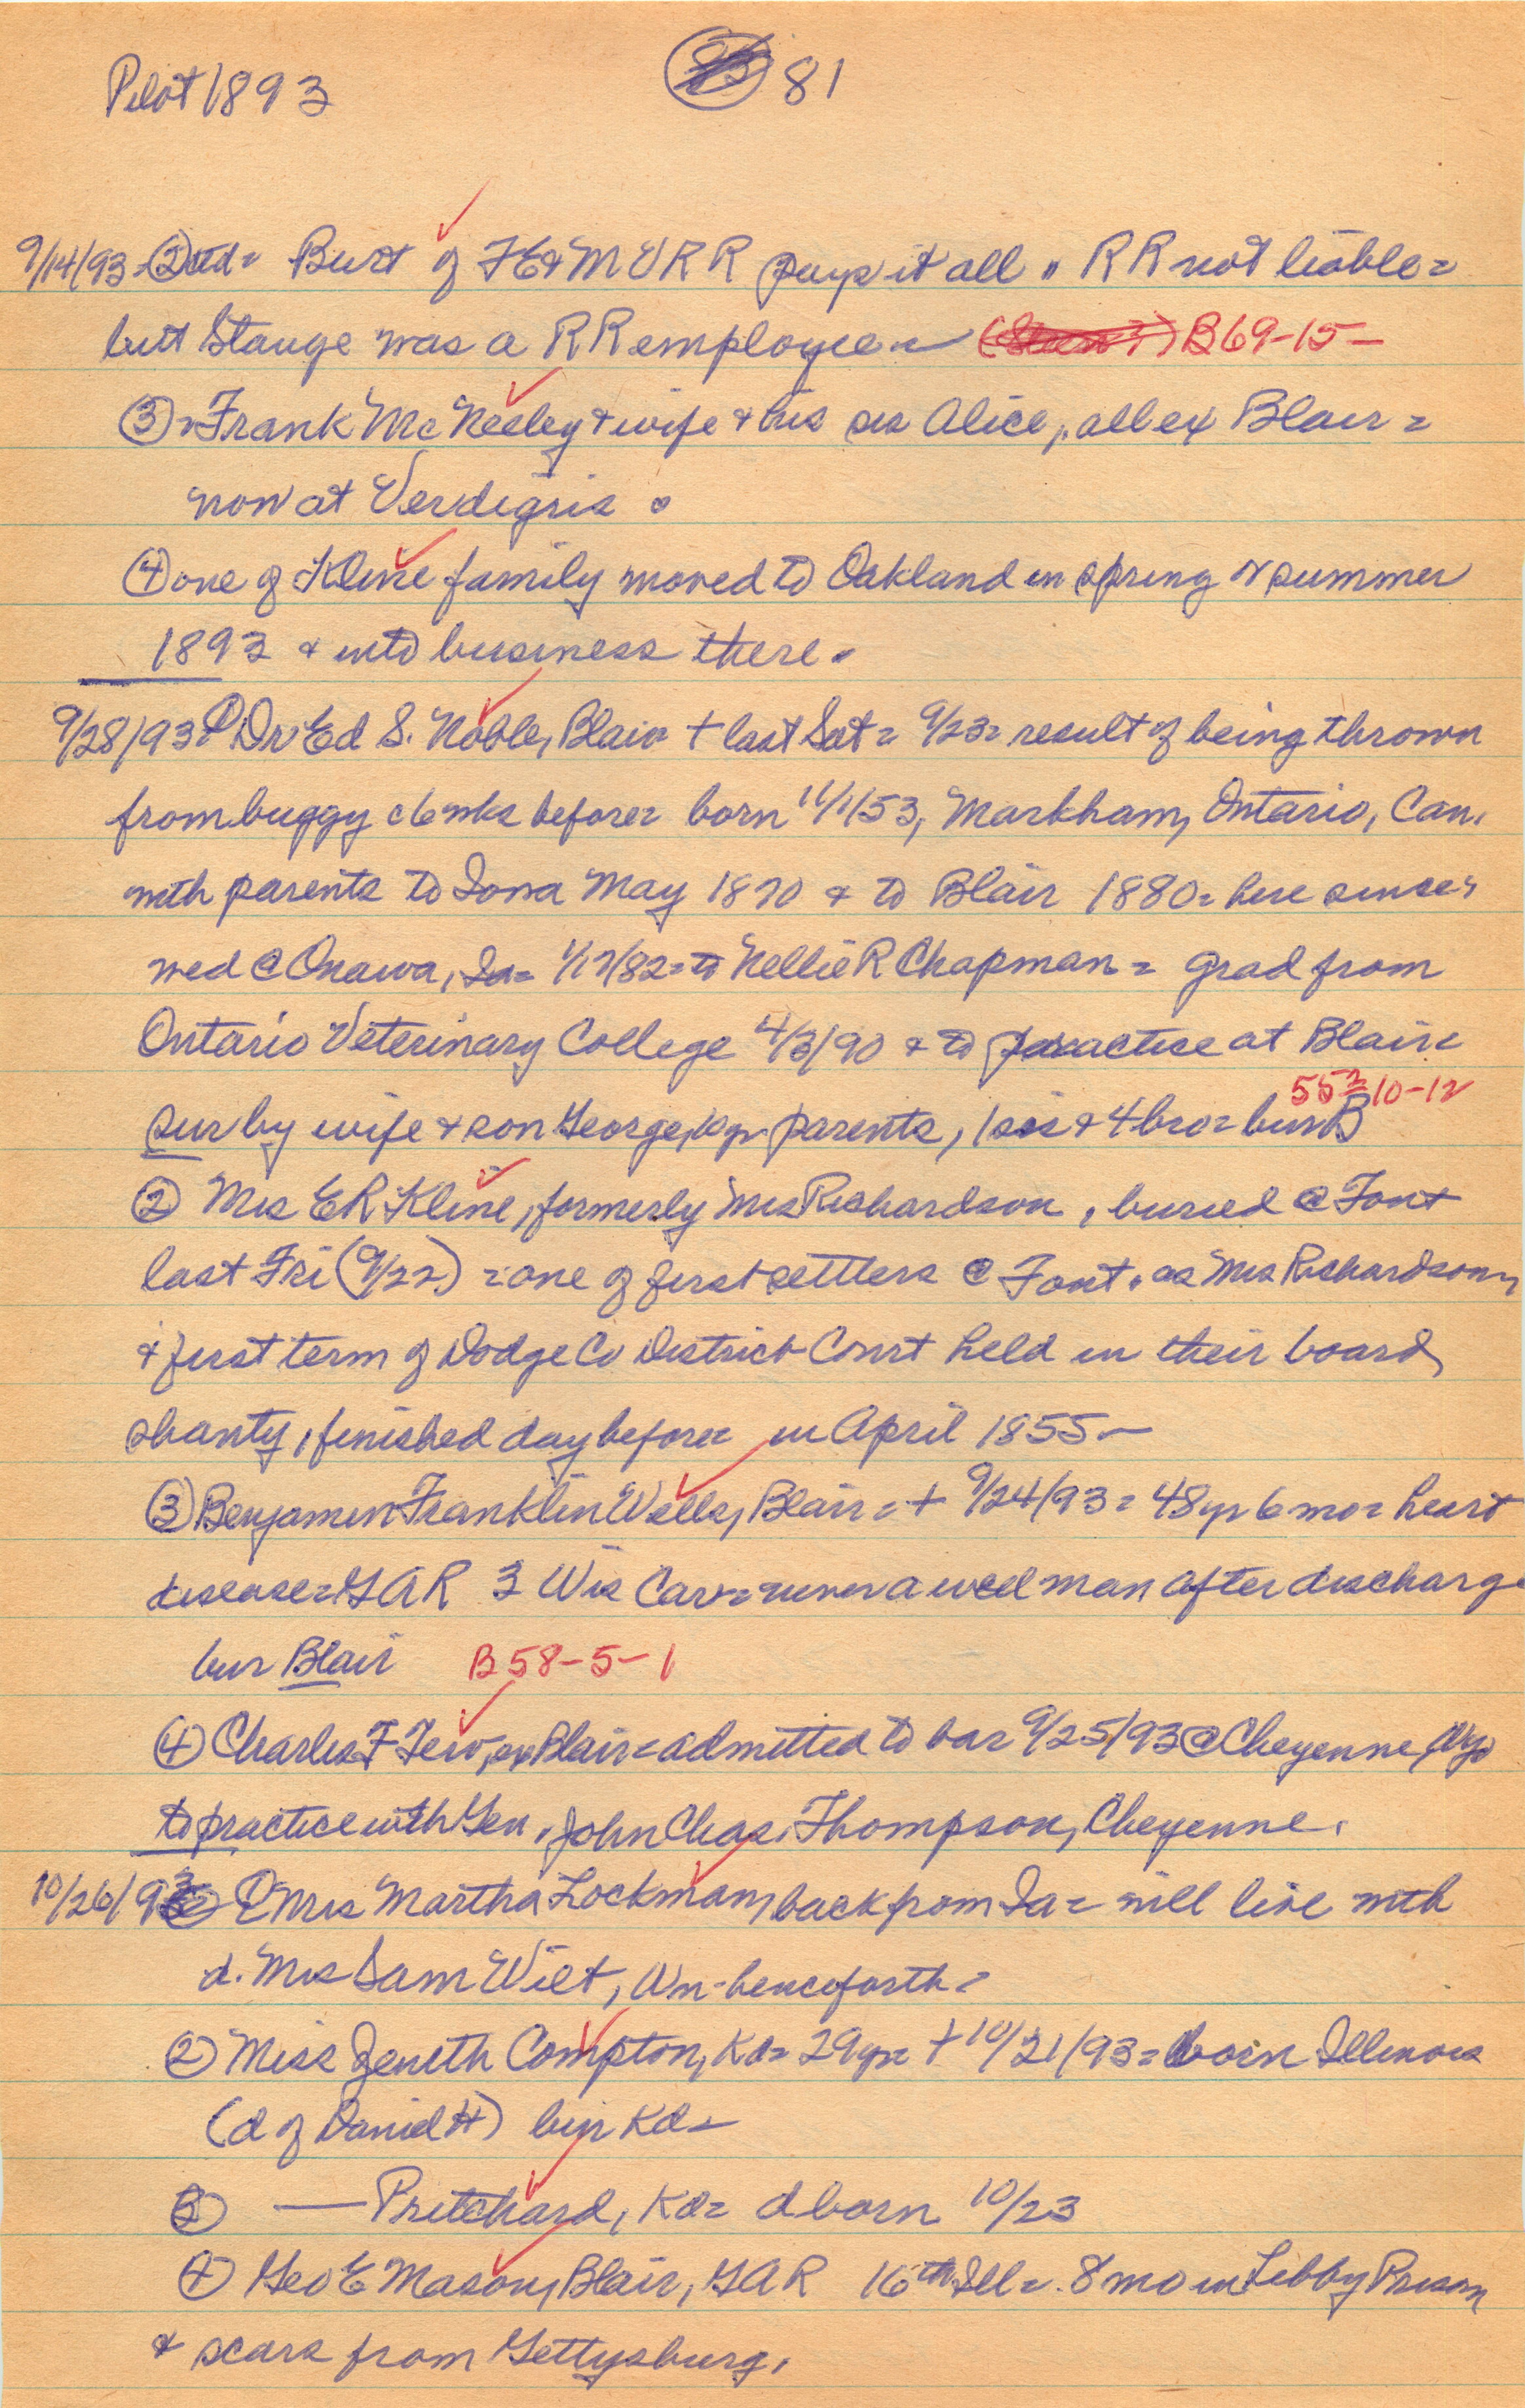 Pilot 1893 81
9/14/93 = ② ctd = Burt of FE&MVRR pays it all. RR not liable =
but Stange was a RR employee = B69-15-
③ = Frank McNeeley & wife & his sis Alice, all ex Blair =
now at Verdigris.
④ one of Kline family moved to Oakland in spring or summer
1893 & into business there.
9/28/93 = ① Dr Ed S. Noble, Blair + last Sat = 9/23 = result of being thrown
from buggy c 6 wks before = born 11/1/53, Markham, Ontario, Can.
with parents to Iowa May 1870 & to Blair 1880 = here since,
wed @ Onawa, Ia = 1/17/82 = to Nellie R Chapman = grad from
Ontario Veterinary College 4/3/90 & to practice at Blair =
55 2/3 10-12
sur by wife & son George, 10 yr parents, 1 sis & 4 bro = bur B
② Mrs E R Kline, formerly Mrs Richardson, buried @ Font
last Fri (9/22) = one of first settlers @ Font. as Mrs Richardson,
& first term of Dodge Co District Court held in their board
shanty, finished day before = in April 1855 -
③ Benjamin Franklin Wells, Blair = + 9/24/93 = 48 yr 6 mo = heart
disease = GAR 3 Wis Cav = never a well man after discharge
bur Blair B58-5-1
④ Charles F Tew, ex Blair = admitted to bar 9/25/93 @ Cheyenne, Wyo
to practice with Gen. John Chas. Thompson, Cheyenne.
10/26/93 ① Mrs Martha Lockman, back from Ia = will live with
d. Mrs Sam Wilt, Wn - henceforth =
② Miss Zeneth Compton, Kd = 29 yr = + 10/21/93 = born Illinois
(d of Daniel H) bur Kd =
③ — Pritchard, Kd = d born 10/23
④ Geo E Mason, Blair, GAR 16th Ill = 8 mo in Libby Prison
& scars from Gettysburg.